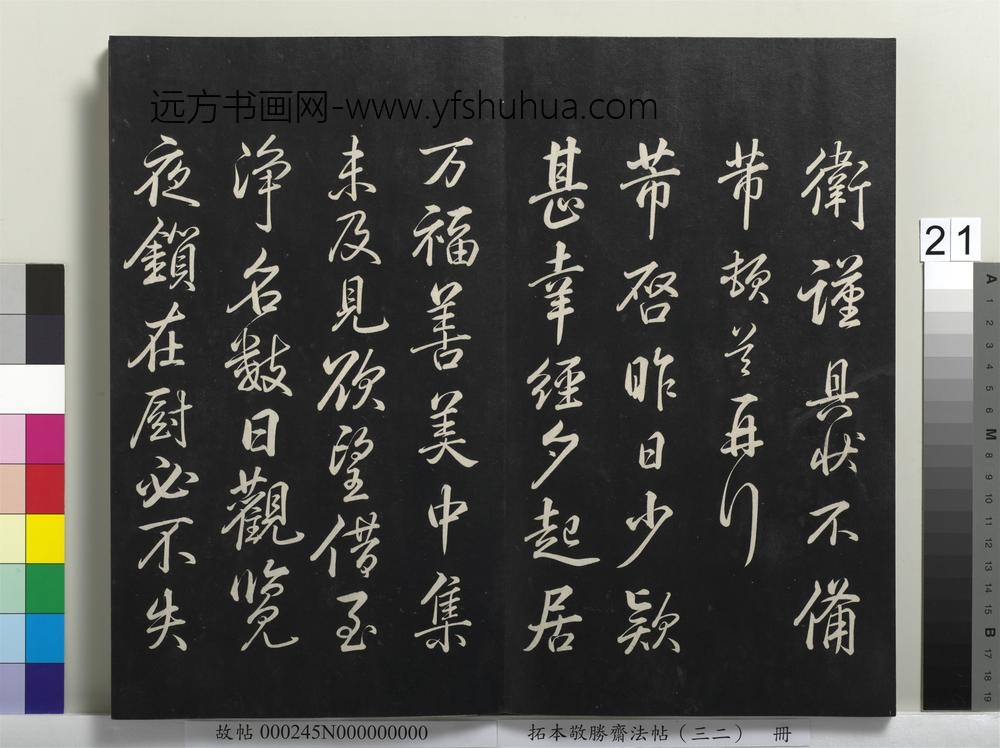 远方书画网-www.yfshuhua.com
衛謹具狀不備
芾頓首再行
芾啓昨日少款
甚幸經夕起居
万福善美中集
未及見欲望借至
淨名數日觀覽
夜鎖在厨必不失
21
故帖 000245N000000000
拓本敬勝齋法帖（三二） 冊
A
1
2
3
4
5
6
M
8
9
10
11
12
13
14
15
B
17
18
19